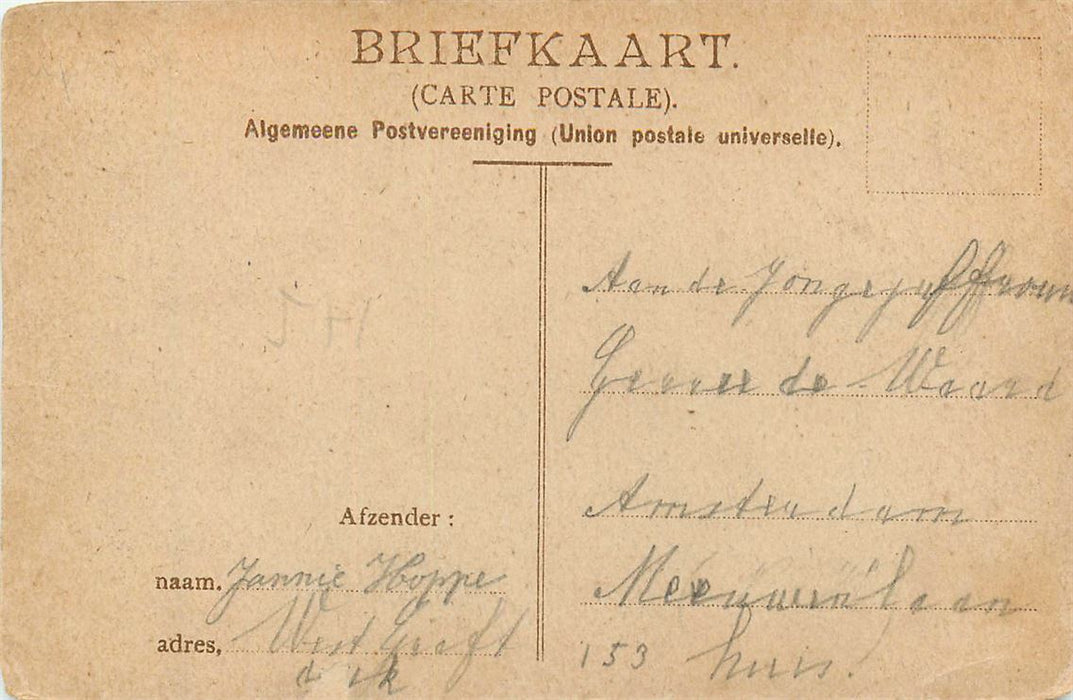 BRIEFKAART.
(CARTE POSTALE).
Algemeene Postvereeniging (Union postale universelle).
Aan de Jongejuffrouw
de Waard
Amsterdam
153 huis.
Afzender:
naam. Jannie Hoppe
adres, West